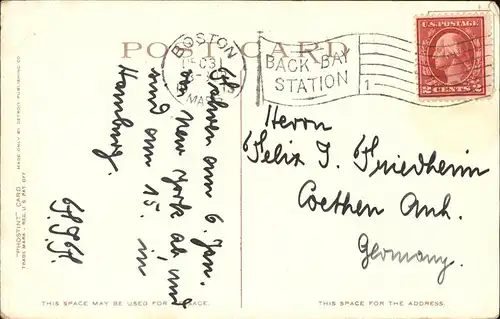 POST CARD
BOSTON
DEC 31
MASS
BACK BAY
STATION
1
U.S. POSTAGE
2 CENTS 2
fahren am 6. Jan.
von New York ab, und
sind am 15. in
Hamburg.
Herrn
Felix J. Friedheim
Coethen Anh.
Germany.
"PHOSTINT" CARD MADE ONLY BY DETROIT PUBLISHING CO.
TRADE MARK - REG. U.S. PAT. OFF.
THIS SPACE MAY BE USED FOR
THIS SPACE FOR THE ADDRESS.